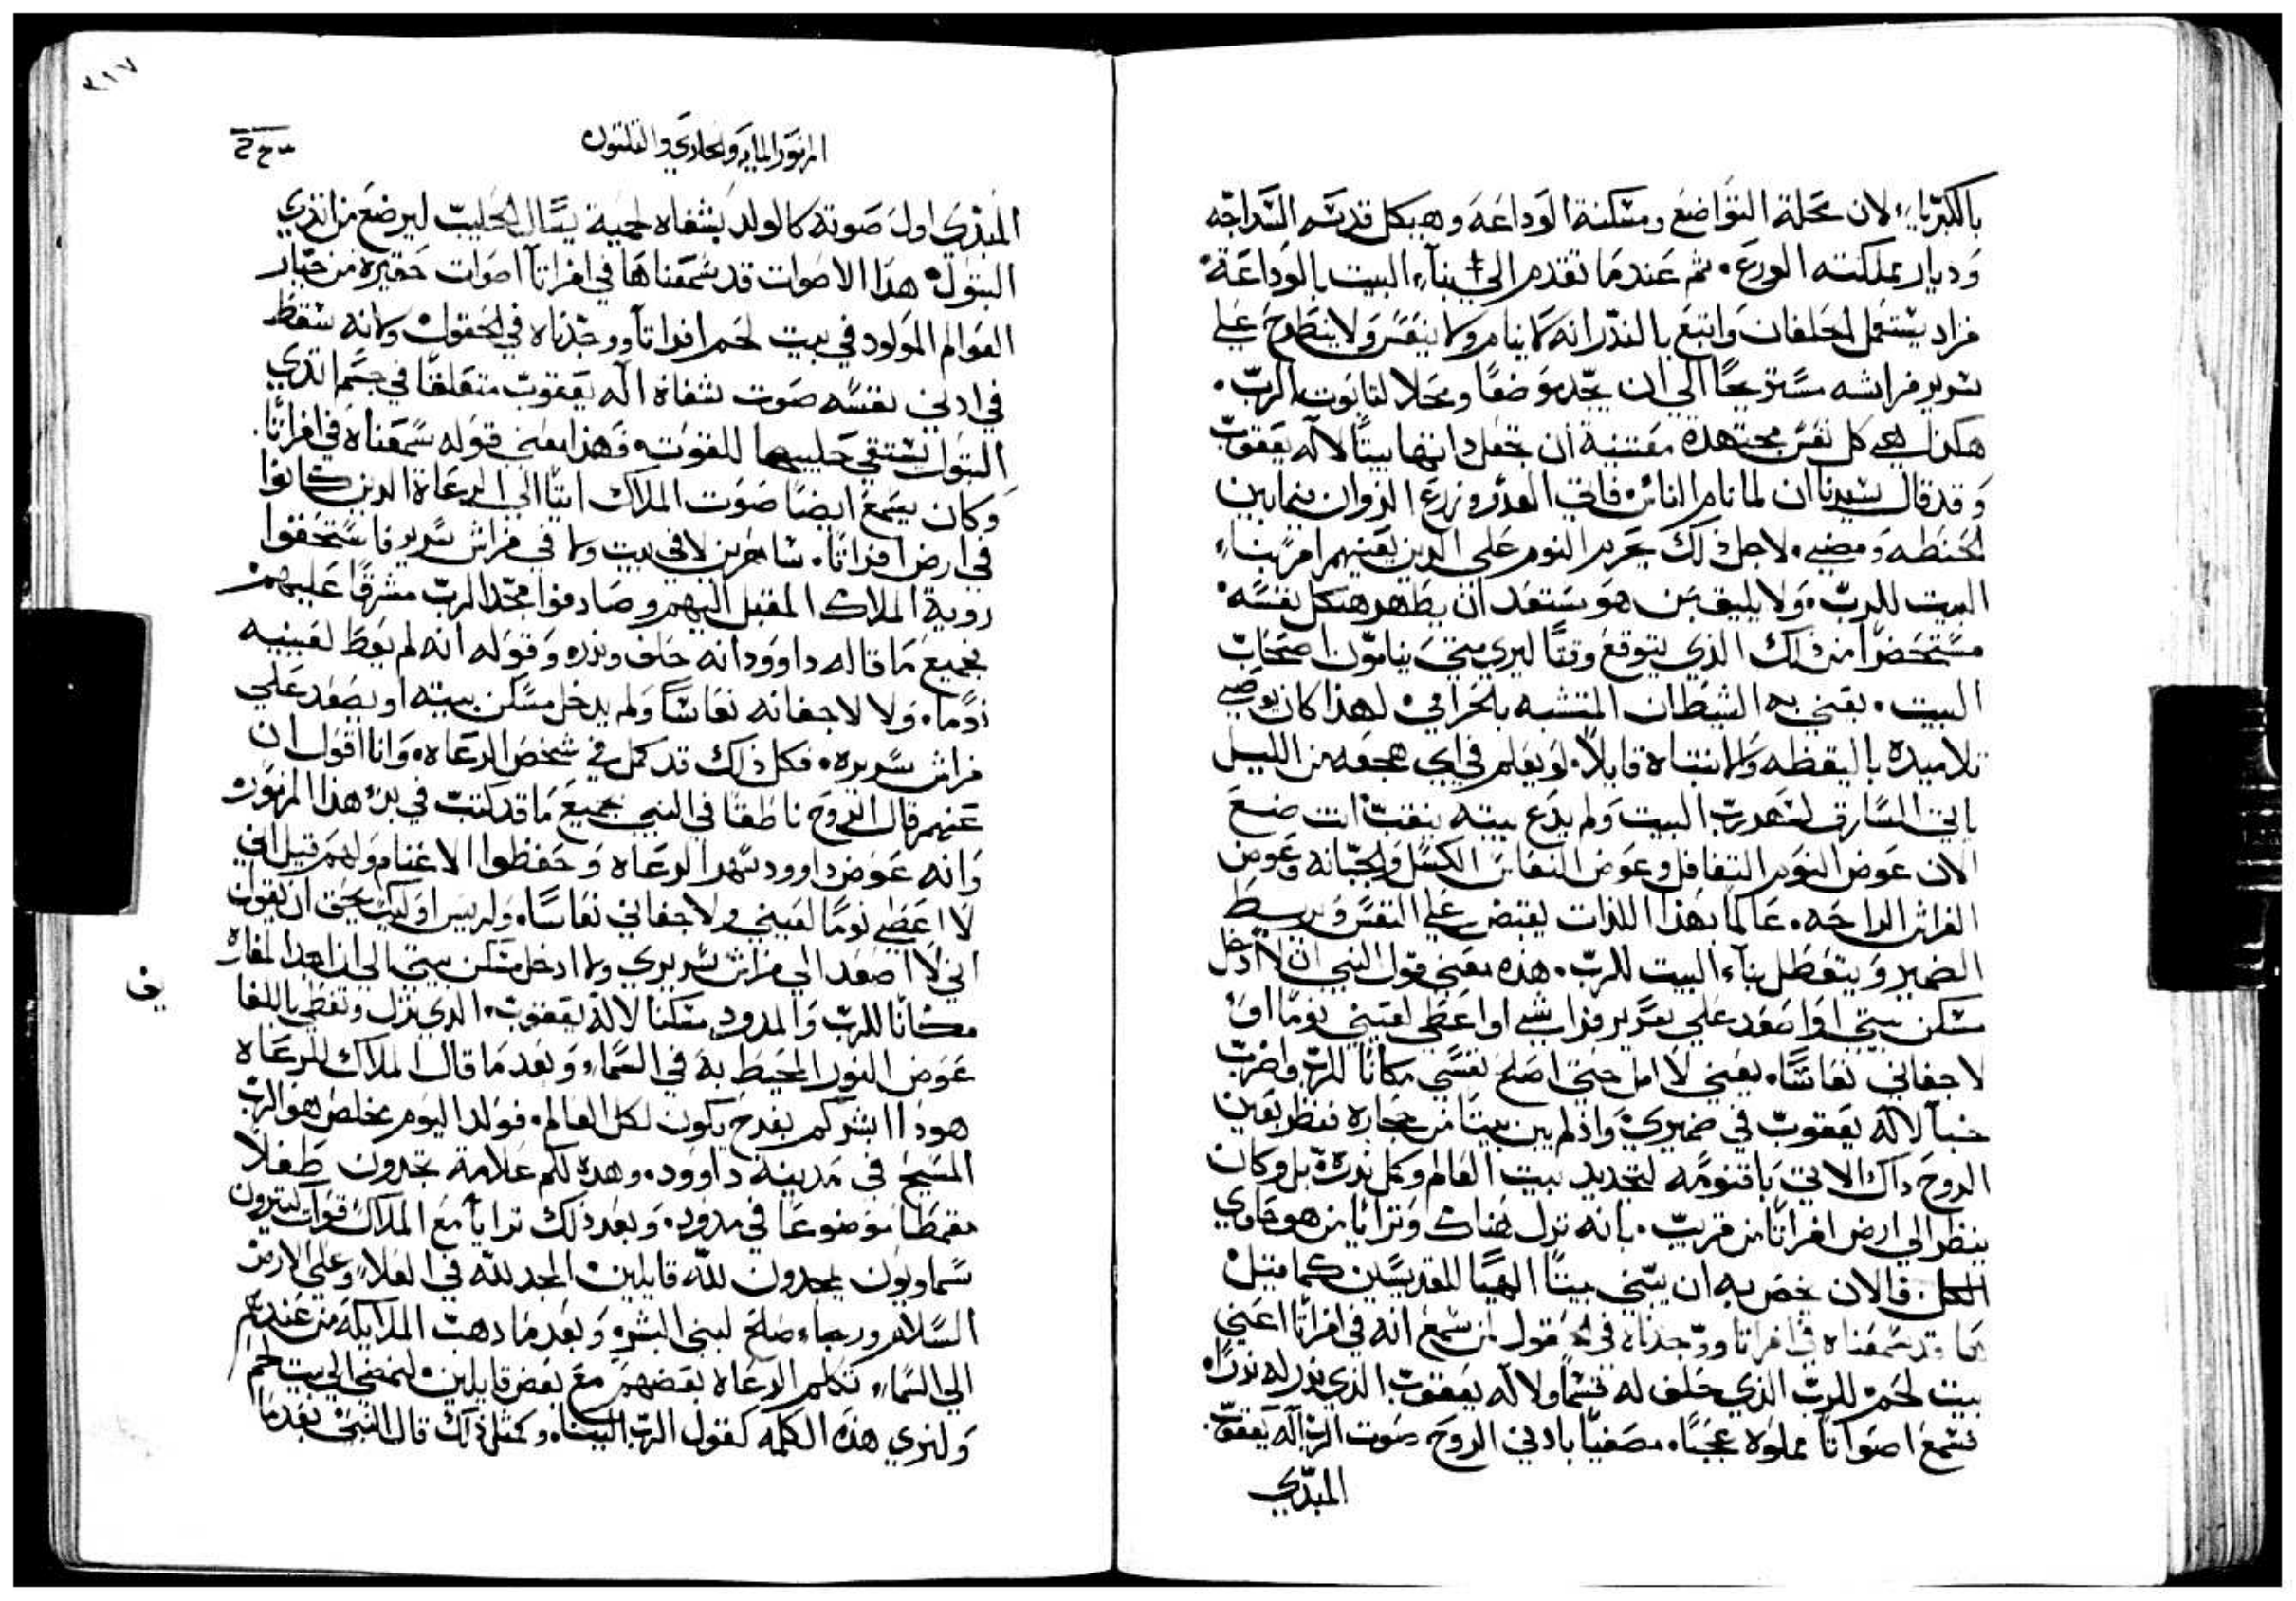 بالكبرياء لان محلة التواضع ومسكنة الوداعة وهيكل قدسه السداجه
وديار مملكته الورع. ثم عندما تقدم الي بناء البيت بالوداعة
فزاد يستعمل الحلفان واتبع بالندر انه لا ينام ولا ينعس ولا ينطرح علي
سرير فراشه مستريحًا الي ان يجد موضعًا ومحلا لتابوت الرب.
هكذا هي كل نفس مجتهده مقتنية ان تجعل داتها بيتًا لاله يعقوب
وقد قال سيدنا ان لما نام الناس فاتي العدو وزرع الزوان فيما بين
الحنطه ومضي. لاجل ذلك يحرم النوم علي الدين يعنيهم امر بناء
البيت للرب. ولا يليق بمن هو مستعد ان يطهر هيكل نفسه
مستحضرا من ذلك الذي يتوقع وقتًا ليري متي يناموّن اصحاب
البيت. يعني به الشيطان المتشبه بالحرامي لهذا كان يوصي
تلاميده باليقظه والانتباه قايلاً. لو يعلم في اي هجعه من الليل
ياتي السارق لسهد رب البيت ولم يدع بيته ينقب انت ضع
الان عوض النوم التغافل وعوض النعاس الكسل والجبانه وعوض
الفراش الراحه. عالما بهذا اللذات يقبض علي النفس ويربط
الضمير ويتعطل بناء البيت للرب. هذه معني قول النبي ان لا ادخل
مسكن بيتي او اصعد علي سرير فراشي او اعطي لعيني نومًا او
لاجفاني نعاسًا. يعني لا امل حتي اصلح نفسي مكانًا للرب واضرب
خباء لاله يعقوب في ضميري واذ لم يبن بيتًا من حجاره فنظر بعين
الروح داك الاتي باقنومه لتجديد بيت العالم وكمل ندره بل وكان
ينظر الي ارض افراتا من قريب. بانه نزل هناك وترايا من هو حاوي
الكل. فالان خص به ان يبني بيتًا الهيًا للقديسين كما قيل
ها قد سمعناه في افراتا ووجدناه في الحقول لمن سمع انه في افراتا اعني
بيت لحم للرب الذي حلف له قسمًا ولاله يعقوب الذي ندر له ندرًا.
تسمع اصواتًا مملوه عجبًا. مصغيًا بادني الروح صوت الرب اله يعقوب.
المبدي
٣١٧
المزمور المايه والحادي والثلثون
المبدي اول صوته كالولد بشفاه لحمية يسال الحليب ليرضع من اتدي
البتول هذا الاصوات قد سمعناها في افراتا اصوات حقيرة من جبار
العوالم المولود في بيت لحم افراتا ووجدناه في الحقول ولانه سقط
في ادني نفسه صوت شفاة اله يعقوب متعلقًا في جسم اتدي
البتول يستقي حليبها للقوت. فهذا يعني قوله سمعناه في افراتا.
وكان يسمع ايضًا صوت الملاك اتيًا الي الرعاة الدين كانوا
في ارض افراتا. ساهرين لا في بيت ولا في فراش سرير فاستحقوا
روية الملاك المقبل اليهم وصادفوا مجد الرب مشرقًا عليهم
بجميع ما قاله داوود انه حلف وندره وقوله انه لم يعط لعينيه
نومًا. ولا لاجفانه نعاسًا ولم يدخل مسكن بيته او يصعد علي
فراش سريره. فكل ذلك قد كمل في شخص الرعاه. وانا اقول ان
عنهم قال الروح ناطقًا في النبي بجميع ما قد كتب في بدء هذا المزمور
وانه عوض داوود سهر الرعاه وحفظوا الاغنام ولهم قيل اني
لا اعطي نومًا لعيني ولا جفاني نعاسًا. وليس اوليك يحق ان يقول
اني لا اصعد الي فراش سريري ولا ادخل مسكن بيتي الي ان اجد المغاره
مكانًا للرب والمدود مسكنا لاله يعقوب. الدي نزل وتغطي باللفايف
عوض النور المحيط به في السماء. وبعد ما قال الملاك للرعاه
هودا ابشركم بفرح يكون لكل العالم. فولد اليوم مخلص هو الرب
المسيح في مدينة داوود. وهده لكم علامة تجدون طفلاً
مقمطًا موضوعًا في مدود. وبعد ذلك ترايا مع الملاك قوات كتيرون
سماويون يمجدون لله قايلين المجد لله في العلاء وعلي الارض
السلام ورجاء صالح لبني البشر. وبعد ما دهبت الملايكه من عندهم
الي السماء تكلم الرعاه بعضهم مع بعض قايلين لنمضي الي بيت لحم
ولنري هذه الكلمه كقول الرب الينا. وكمثل ذلك قال النبي بعد ما